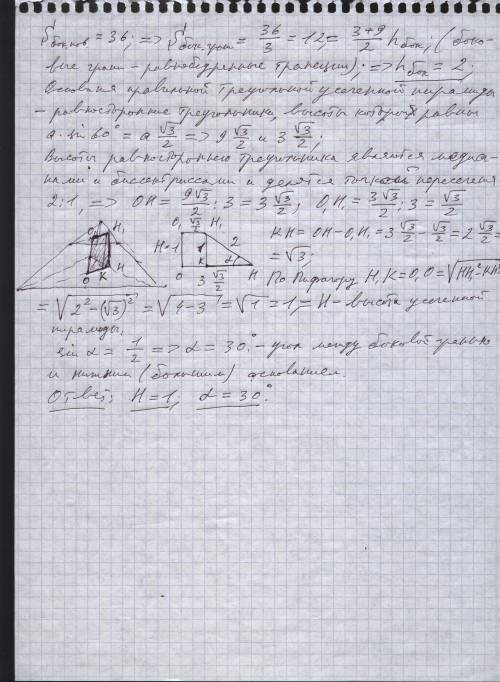 S бок.пов = 36; => S' бок.гран = 36/3 = 12 = (3+9)/2 h бок; (боко-
вые грани - равнобедренные трапеции); => h бок = 2;
Основания правильной треугольной усеченной пирамиды
- равносторонние треугольники, высоты которых равны
a·sin 60° = a √3/2 => 9 √3/2 и 3 √3/2;
Высоты равностороннего треугольника являются медиа-
нами и биссектриссами и делятся точкой пересечения
2:1, => OH = 9√3/2 : 3 = 3 √3/2; O₁H₁ = 3√3/2 : 3 = √3/2
O₁ H₁ O K H
O₁ √3/2 H₁
H=1 1 2
K α
O 3 √3/2 H
KH = OH - O₁H₁ = 3 √3/2 - √3/2 = 2 √3/2 =
= √3;
По Пифагору H₁K = O₁O = √HH₁² KH²
= √2² - (√3)² = √4-3 = √1 = 1, = H - высота усеченной
пирамиды.
sin α = 1/2 => α = 30° - угол между боковой гранью
и нижним (большим) основанием.
Ответ: H = 1, α = 30°